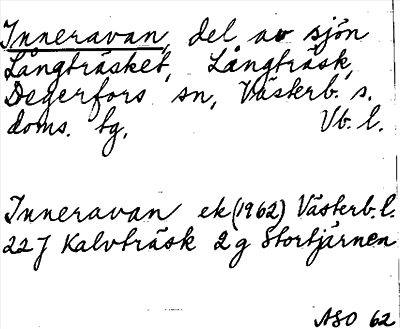 Inneravan, del av sjön
Långträsket, Långträsk,
Degerfors sn, Västerb. s.
doms. tg. Vb. l.
Inneravan ek (1962) Västerb. l.
22 J Kalvträsk 2 g Stortjärnen
ASO 62